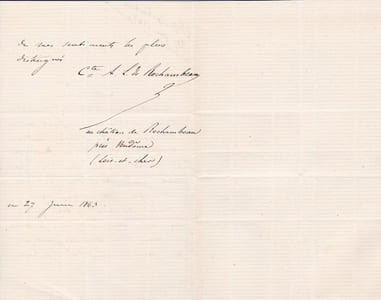 de mes sentiments les plus
distingués
Cte A. L. de Rochambeau
au château de Rochambeau
près Vendôme
(Loir-et-cher)
27 1863